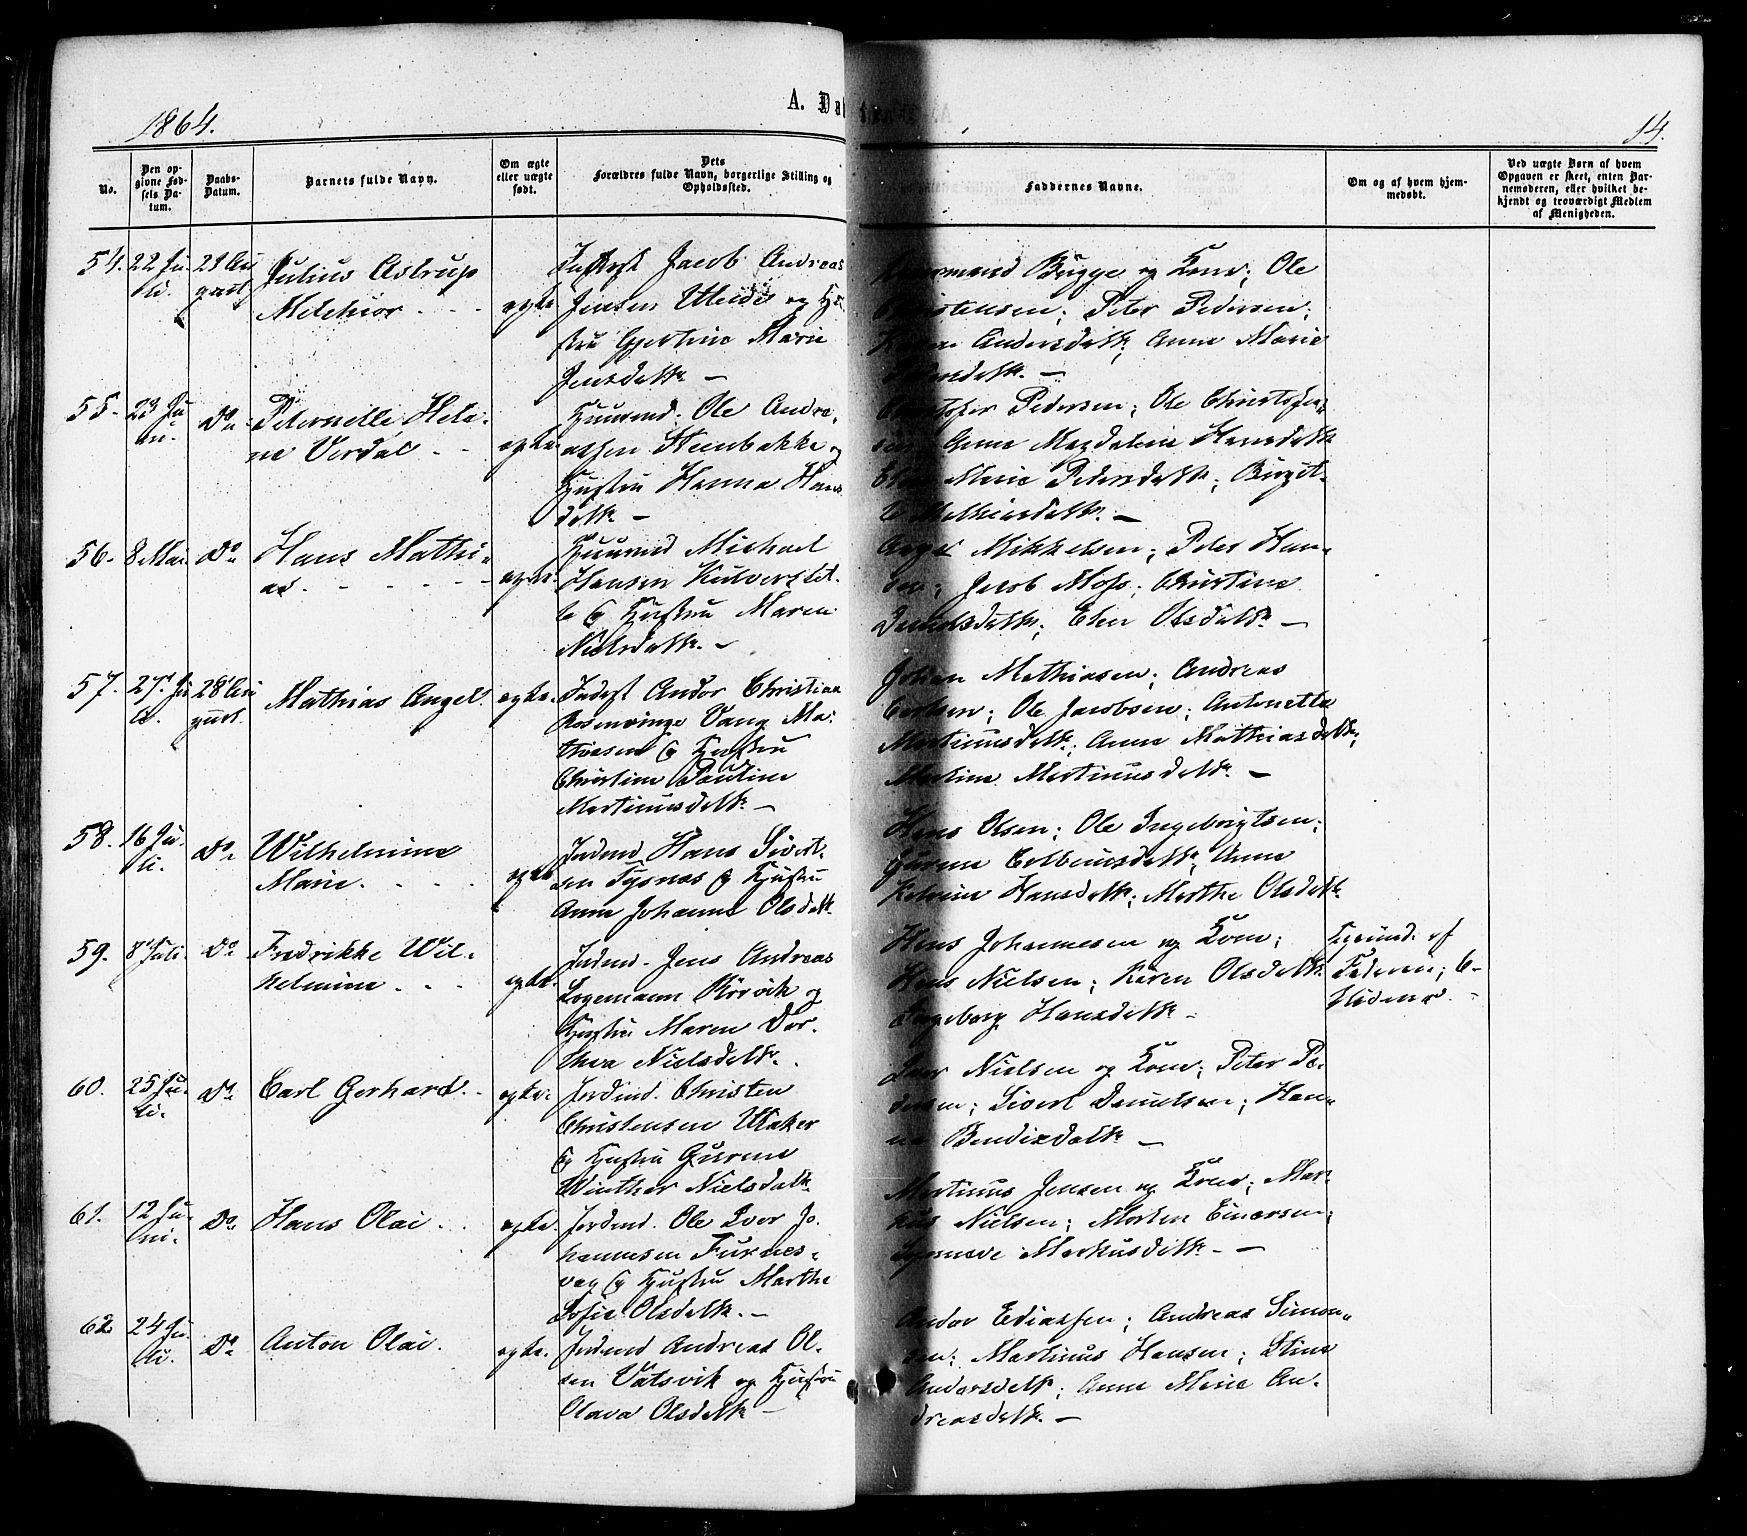 1864.
A. Dø
14.
No.
Den op-
givne Fød-
sels Da-
tum.
Daabs-
Datum.
Barnets fulde Navn.
Om ægte
eller uægte
født.
Dets
Forældres fulde Navn, borgerlige Stilling og
Opholdssted.
Faddernes Navne.
Om og af hvem hjem-
medøbt.
Ved uægte Børn af hvem
Opgaven er skeet, enten Bar-
nemoderen, eller hvilket be-
kjendt og troværdigt Medlem
af Menigheden.
54.
22 Ju-
li.
21 Au
gust
Julius Astrup
Melchior
ægte
Jacob Andreas
Jensen og Hu-
stru Marie
Jensdattr. —
Bugge og Kone; Ole
Peter Pedersen;
Andersdattr; Anna Marie
55.
23 Ju
ni.
Do
Peternelle Hele-
ne Verdal
ægte
Huusmd. Ole Andre-
assen Steenbakke og
Hustru Hanna Hans
dattr. —
Pedersen; Ole Christofer-
sen; Anna Magdalena Hansdattr
Marie Pedersdattr; Birgit-
te Mathiasdattr. —
56.
8 Mai
Do
Hans Mathi-
as.
ægte.
Huusmd Michael
Hansen Kulverslet-
te & Hustru Maren
Nielsdattr. —
Mikkelsen; Peter Han-
sen; Jacob Moss; Christina
Danielsdattr; Elen Olsdattr —
57.
27 Ju
li.
28 Au
gust.
Mathias Angel.
ægte.
Indest Andor Christian
Rosenvinge Vang Ma-
thiasen & Hustru
Christine Pauline
Martinusdattr —
Johan Mathiasen; Andreas
Ole Jacobsen; Antonetta
Martinusdattr; Anna Mathiasdattr;
Martina Martinusdattr. —
58.
16 Ju-
li.
Do
Wilhelmine
Marie.
ægte
Indend Hans Sivert-
sen Tysnes & Hustru
Anne Johanna Olsdattr
Hans Olsen; Ole Ingebrigtsen;
Anna
Hansdattr; Marthe Olsdattr
59.
8 Juli.
Do
Fredrikke Wil-
helmine
ægte.
Indend. Jens Andreas
Logemann Rörvik og
Hustru Maren Dor-
thea Nielsdattr.
Hans Johannesen og Kone;
Hans Nielsen; Karen Olsdattr
Ingeborg Hansdattr. —
af
Faderen;
60.
25 Ju-
li.
Do
Carl Gerhard.
ægte.
Jordend. Christen
Christensen Utaker
& Hustru Gurine
Winther Nielsdattr
Iver Nielsen og Kone; Peter Pe-
dersen; Sivert Danielsen; Han-
na Bendixdattr —
61.
12 Ju-
ni.
Do
Hans Olai
ægte.
Jordend. Ole Iver Jo-
hannesen Furnes-
vag & Hustru Marthe
Sofie Olsdattr. —
Martinus Jensen og Kone; Mar-
kus Nielsen; Morten Einersen;
Markusdattr. —
62.
24 Ju
li.
Do
Anton Olai.
ægte.
Jordend Andreas Ol-
sen Vatsvik og Hustru
Olava Olsdattr —
Andor Ediassen; Andreas Simon-
sen; Martinus Hansen; Stina
Andersdattr; Anna Marie An-
dreasdattr. —